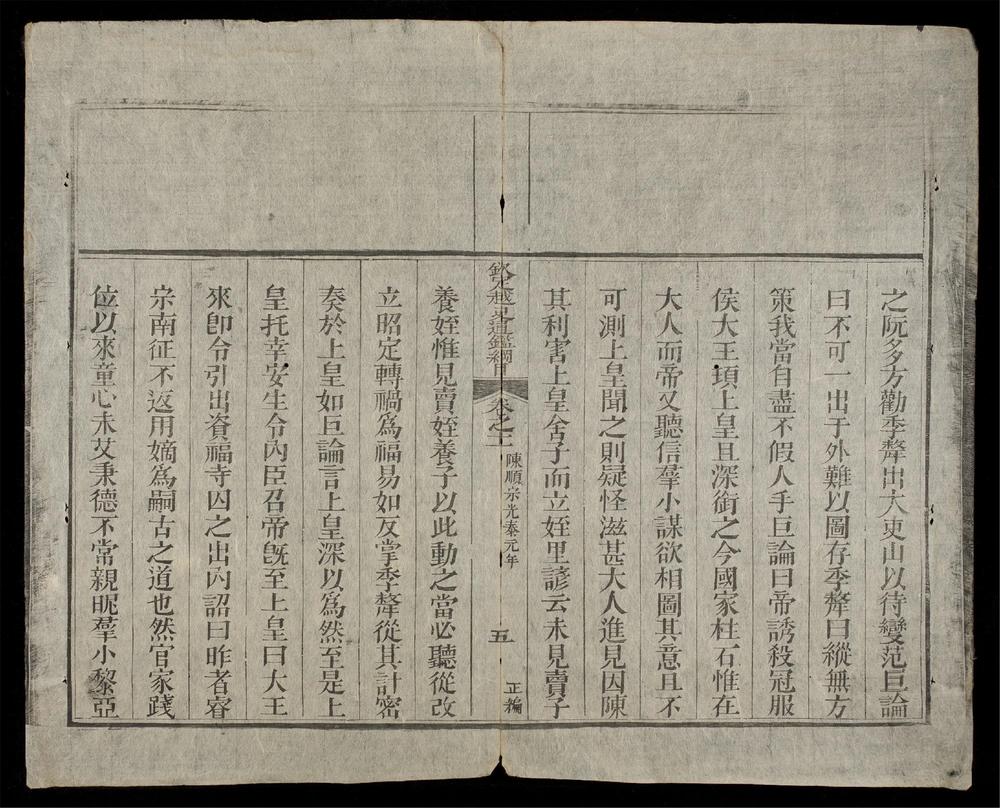 之阮多方勸季犛出大吏山以待變范巨論
曰不可一出于外難以圖存季犛曰縱無方
策我當自盡不假人手巨論曰帝誘殺冠服
侯大王頊上皇且深銜之今國家柱石惟在
大人而帝又聽信羣小謀欲相圖其意且不
可測上皇聞之則疑怪滋甚大人進見因陳
其利害上皇舍子而立姪里諺云未見賣子
欽定越史通鑑綱目 卷之十一 陳順宗光泰元年 五 正編
養姪惟見賣姪養子以此動之當必聽從改
立昭定轉禍爲福易如反掌季犛從其計密
奏於上皇如巨論言上皇深以爲然至是上
皇托幸安生令內臣召帝旣至上皇曰大王
來卽令引出資福寺囚之出內詔曰昨者睿
宗南征不返用嫡爲嗣古之道也然官家踐
位以來童心未艾秉德不常親昵羣小黎亞